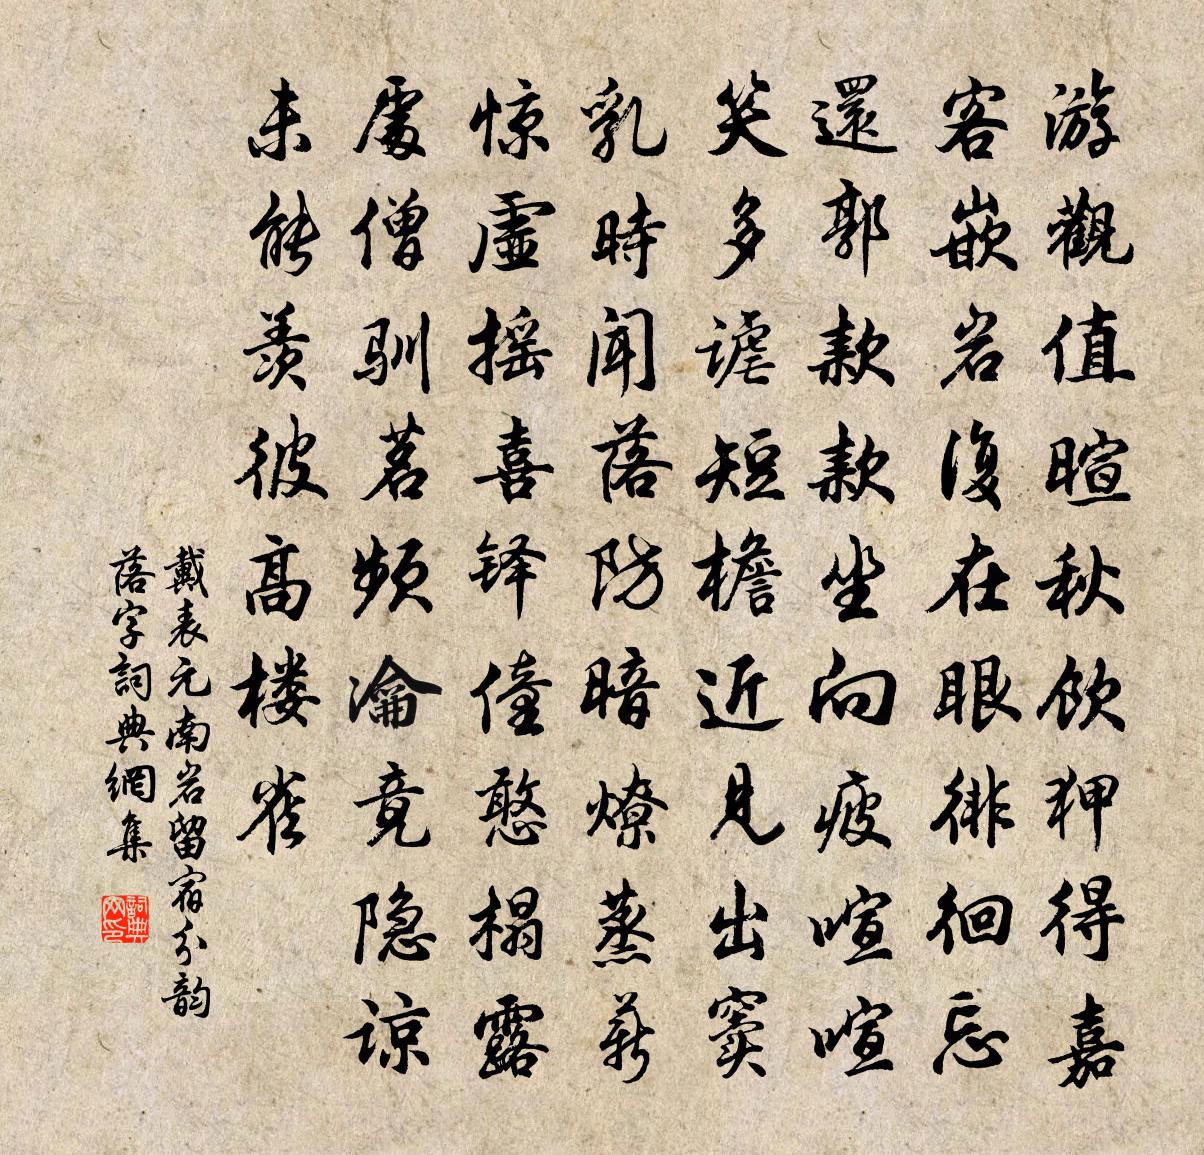 游觀值暄秋飲狎得嘉
客嵌岩復在眼徘徊忘
還郭款款坐向疲喧喧
笑多谑短檐近見出窦
乳時聞落防暗燎蒸薪
惊虛摇喜铎僮憨榻露
處僧驯茗频瀹竟隐谅
未能羡彼高楼雀
戴表元南岩留宿分韵
落字詞典網集
詞典网印